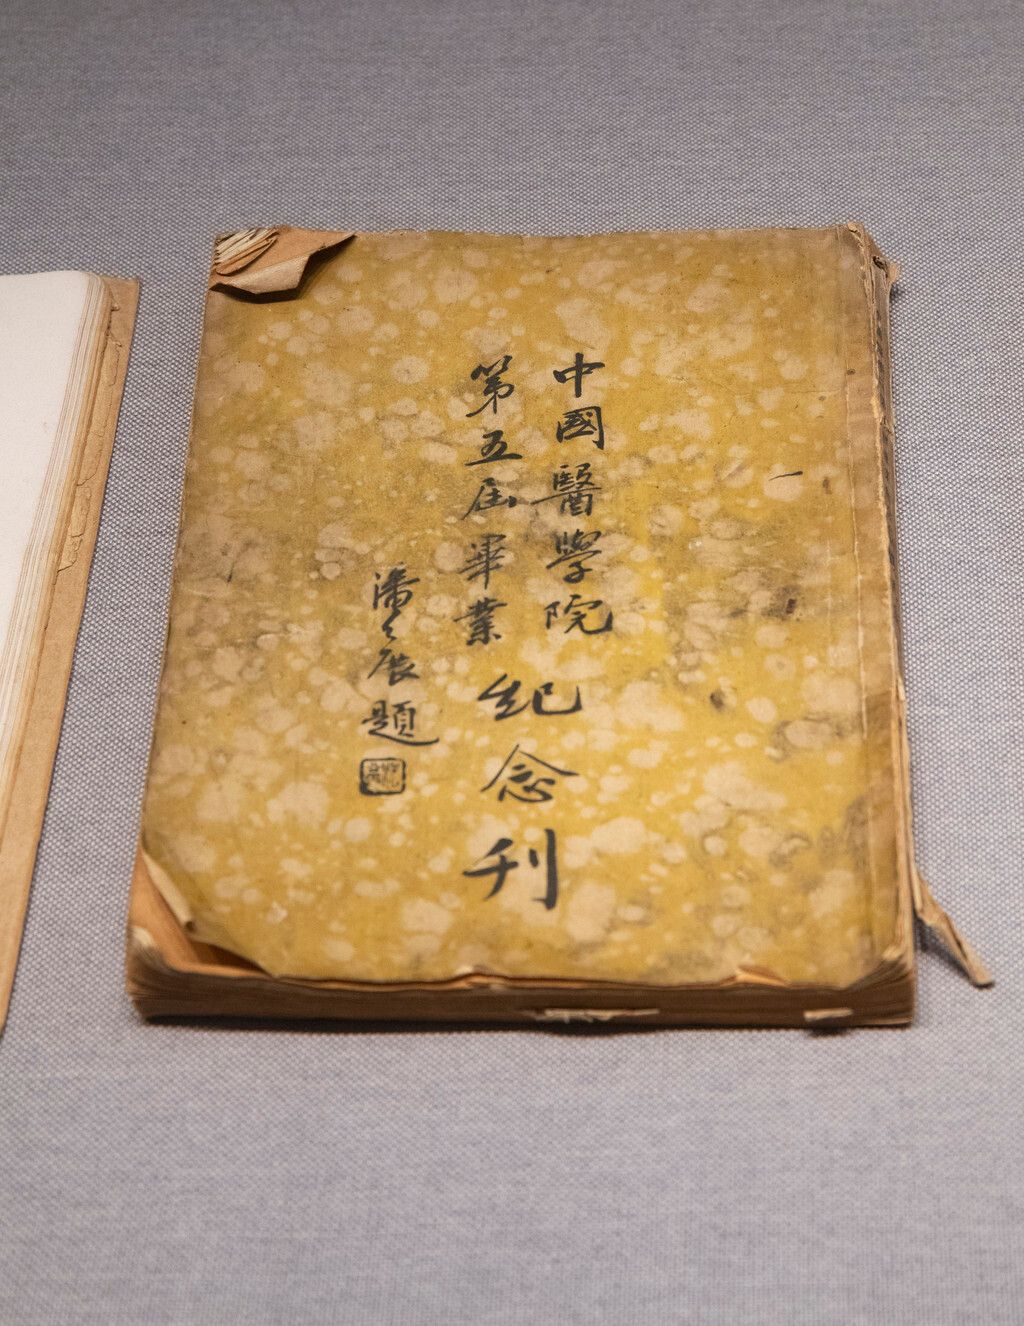 中國醫學院
第五屆畢業
紀念刊
潘公展題